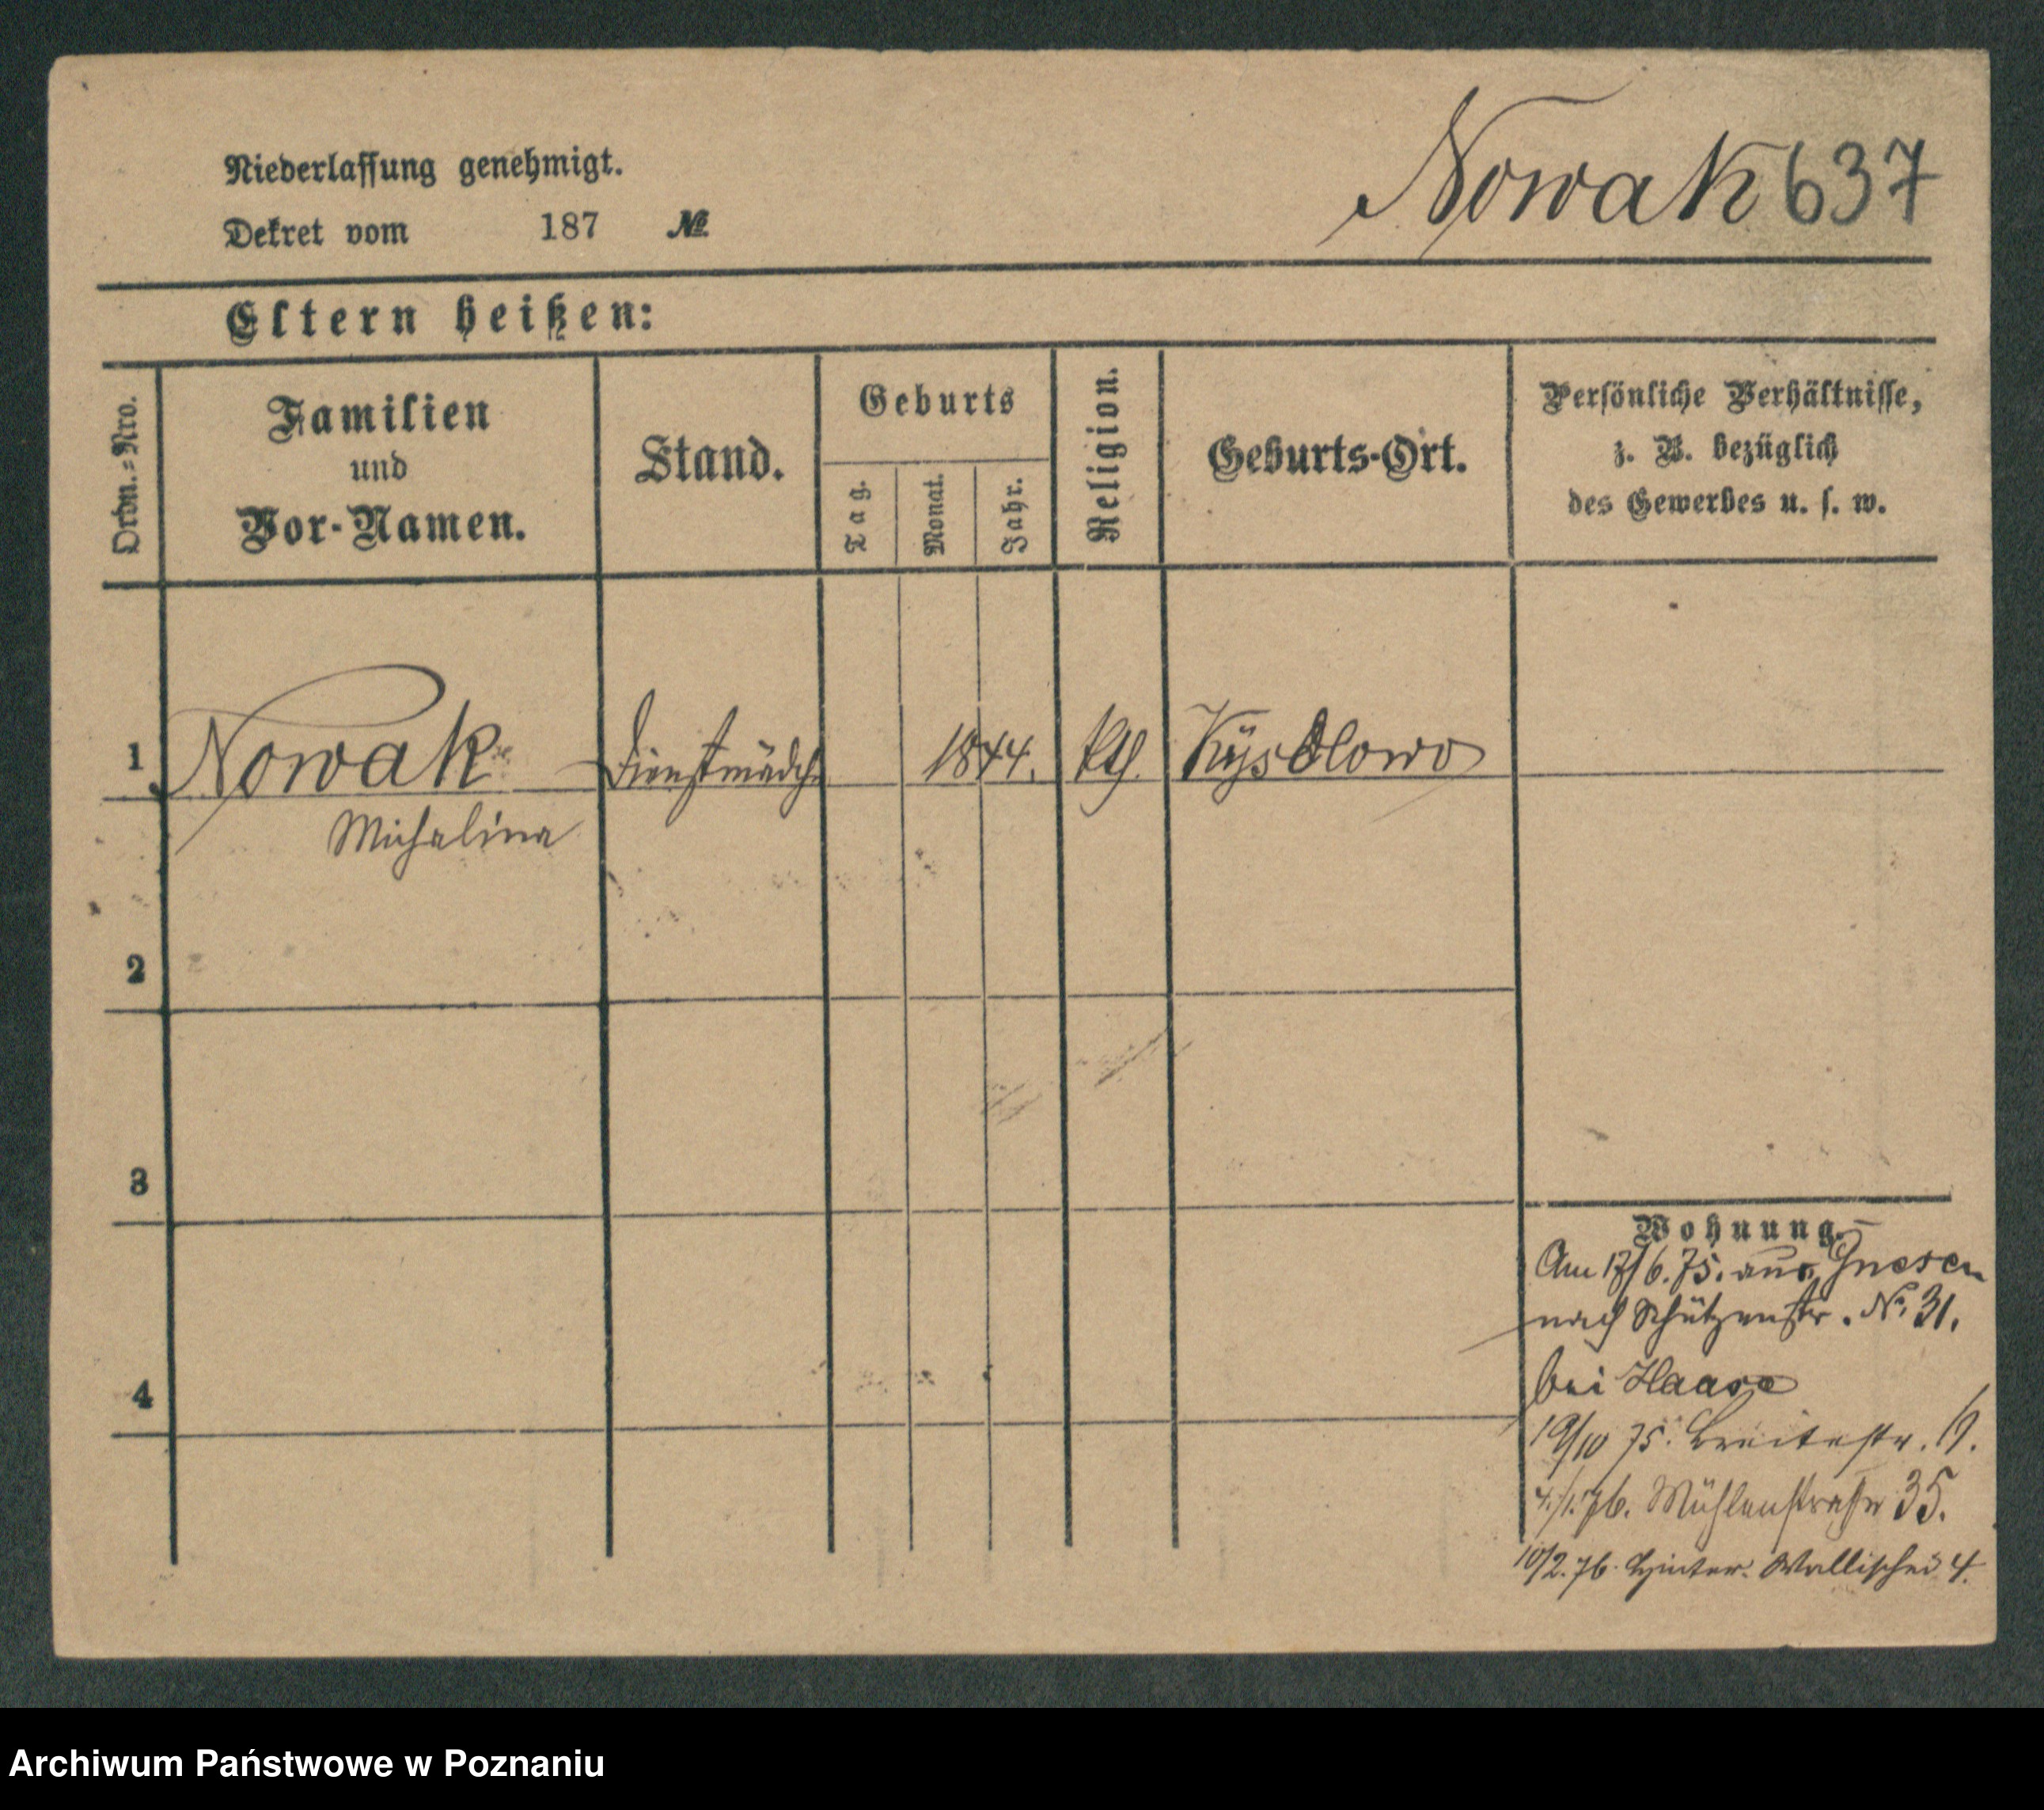 Nowak 637
Niederlassung genehmigt.
Dekret vom 187 №
Eltern heißen:
Ordn.=Nro.
Familien
und
Vor-Namen.
Stand.
Geburts
Tag.
Monat.
Jahr.
Religion.
Geburts-Ort.
Persönliche Verhältnisse,
z. B. bezüglich
des Gewerbes u. s. w.
1 Nowak Dienstmädch. 1844. kth.
Michalina
2
3
4
Wohnung.
Am 17/6.75. aus Gnesen
nach Schützenstr. No. 31.
bei Haase
19/10 75. Breitestr.
4./1.76. Mühlenstraße 35.
10/2.76. Hinter. Wallischei 4.
Archiwum Państwowe w Poznaniu